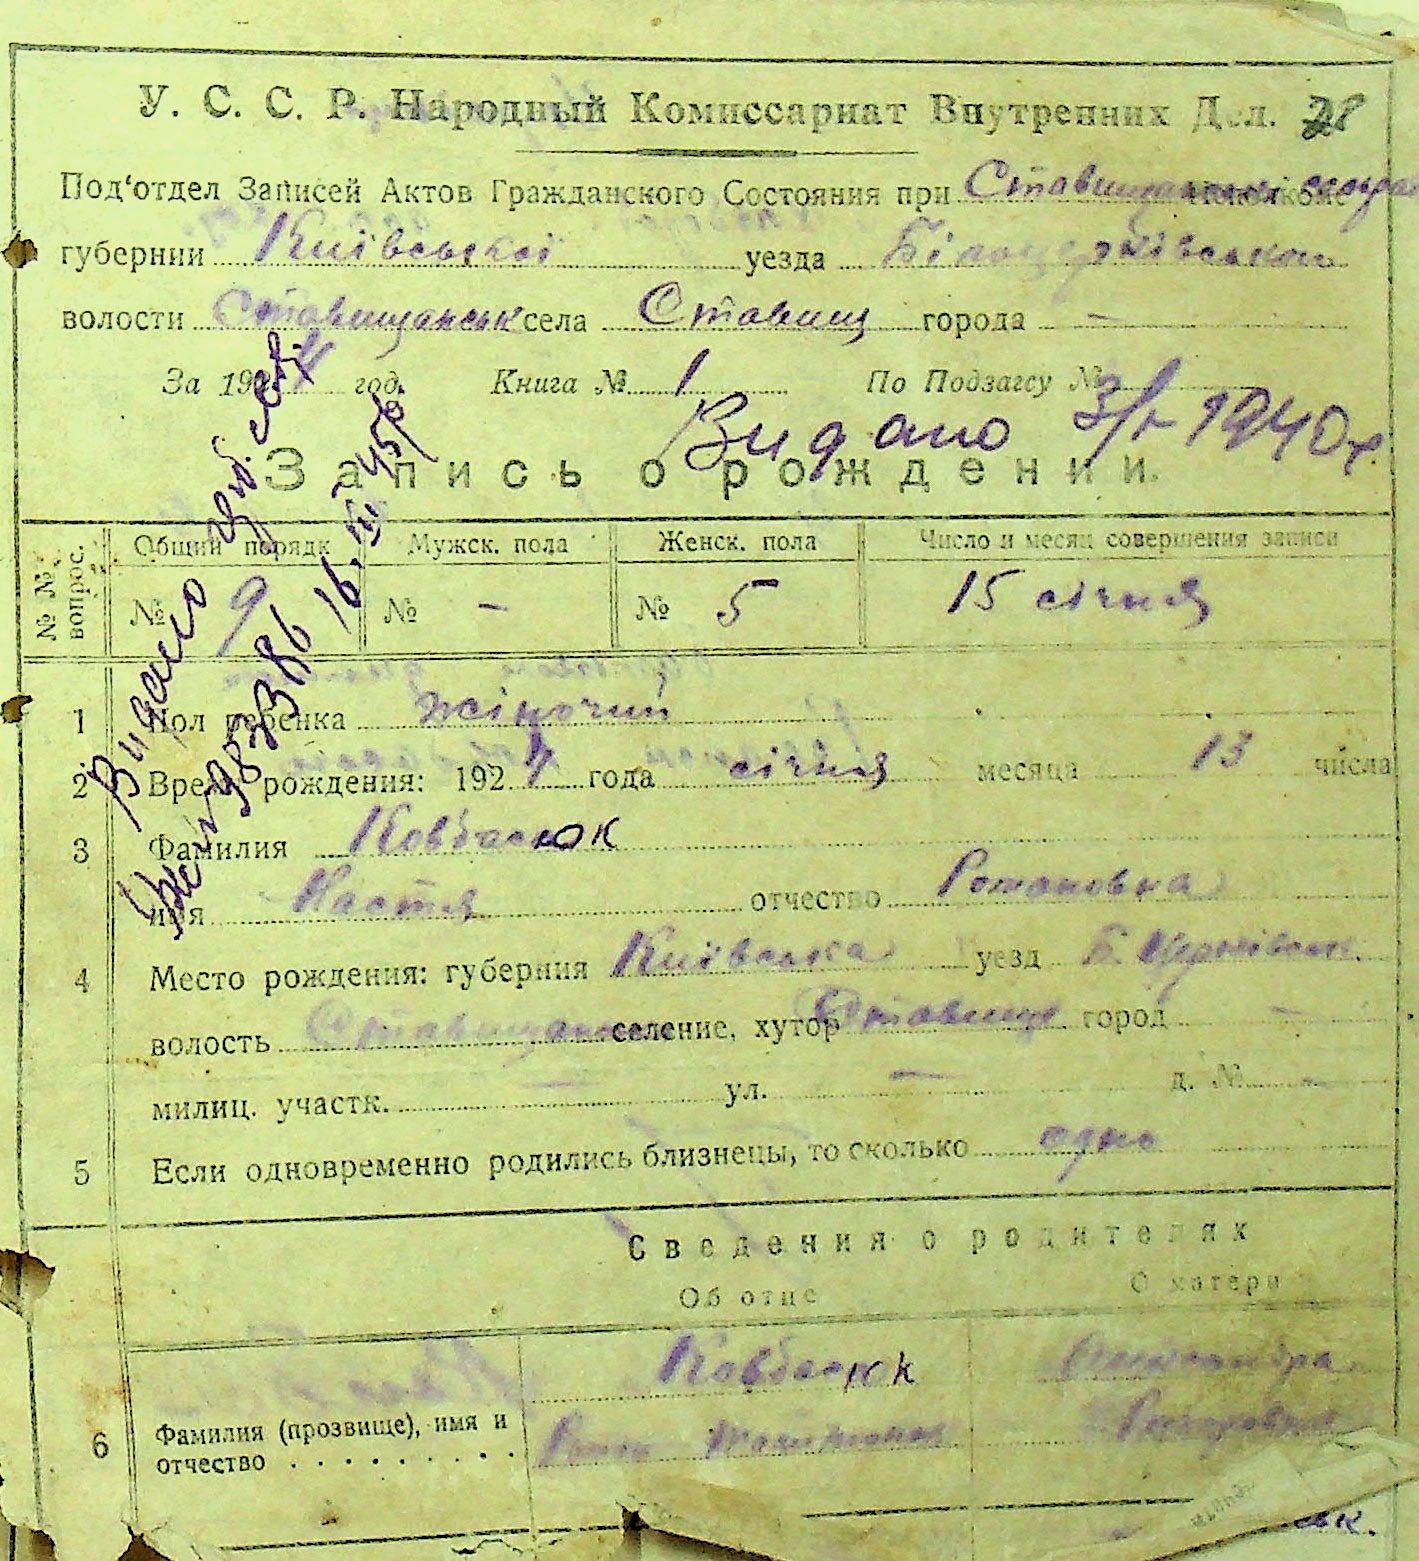 У. С. С. Р. Народный Комиссариат Внутренних Дел. 28
Под'отдел Записей Актов Гражданского Состояния при
губернии Київської уезда Білоцерківськои
волости Ставищанськ села Ставищ города -
За 1924 год. Книга № 1 По Подзагсу №
Видано 3/I- 1940р.
Запись о рождении.
№ № вопрос. Общий порядк Мужск. пола Женск. пола Число и месяц совершения записи
№ 9 № - № 5 15 січня
1 Пол ребенка жіночий
2 Время рождения: 1924 года січня месяца 13 числа
3 Фамилия Ковбасюк
имя Настя отчество Романовна
4 Место рождения: губерния Київська уезд Б. Церківськ.
волость Ставищанськ селение, хутор Ставище город -
милиц. участк. - ул. - д. № -
5 Если одновременно родились близнецы, то сколько одно
Сведения о родителях
Об отце О матери
Ковбасюк Олександра
6 Фамилия (прозвище), имя и
отчество . . . . . . . . . Роман
Видано